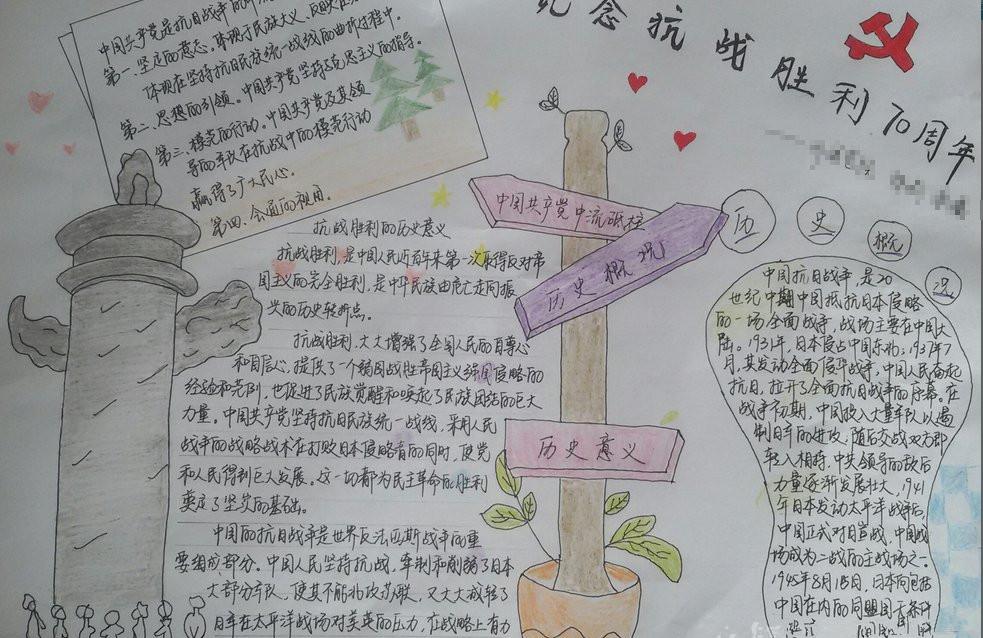 纪念抗战胜利70周年
中国共产党是抗日战争的中
第一、坚定的意志。
体现在坚持抗日民族统一战线的曲折过程中。
第二、思想的引领。中国共产党坚持马克思主义的指导。
第三、模范的行动。中国共产党及其领
导的军队在抗战中的模范行动
赢得了广大民心。
第四、合适的视角。
中国共产党中流砥柱
历史概况
历史意义
抗战胜利的历史意义
抗战胜利,是中国人民近百年来第一次取得反对帝
国主义的完全胜利,是中华民族由危亡走向振
兴的历史转折点。
抗战胜利,大大增强了全国人民的自尊心
和自信心,提供了一个弱国战胜帝国主义强国侵略的
经验和先例,也促进了民族觉醒和唤起了民族团结的巨大
力量。中国共产党坚持抗日民族统一战线,采用人民
战争的战略战术在打败日本侵略者的同时,使党
和人民得到巨大发展。这一切都为民主革命的胜利
奠定了坚实的基础。
中国的抗日战争是世界反法西斯战争的重
要组成部分。中国人民坚持抗战,牵制和削弱了日本
大部分军队,使其不能北攻苏联,又大大减轻了
日军在太平洋战场对美英的压力,在战略上有力
历史概况
中国抗日战争,是20
世纪中期中国抵抗日本侵略
的一场全面战争,战场主要在中国大
陆。1931年,日本侵占中国东北;1937年7
月,其发动全面侵华战争,中国人民奋起
抗日,拉开了全面抗日战争的序幕。在
战争初期,中国投入大量军队以遏
制日军的进攻,随后交战双方即
转入相持,中共领导的敌后
力量逐渐发展壮大,1941
年日本发动太平洋战争后,
中国正式对日宣战,中国战
场成为二战的主战场之一。
1945年8月15日,日本向包括
中国在内的同盟国无条件